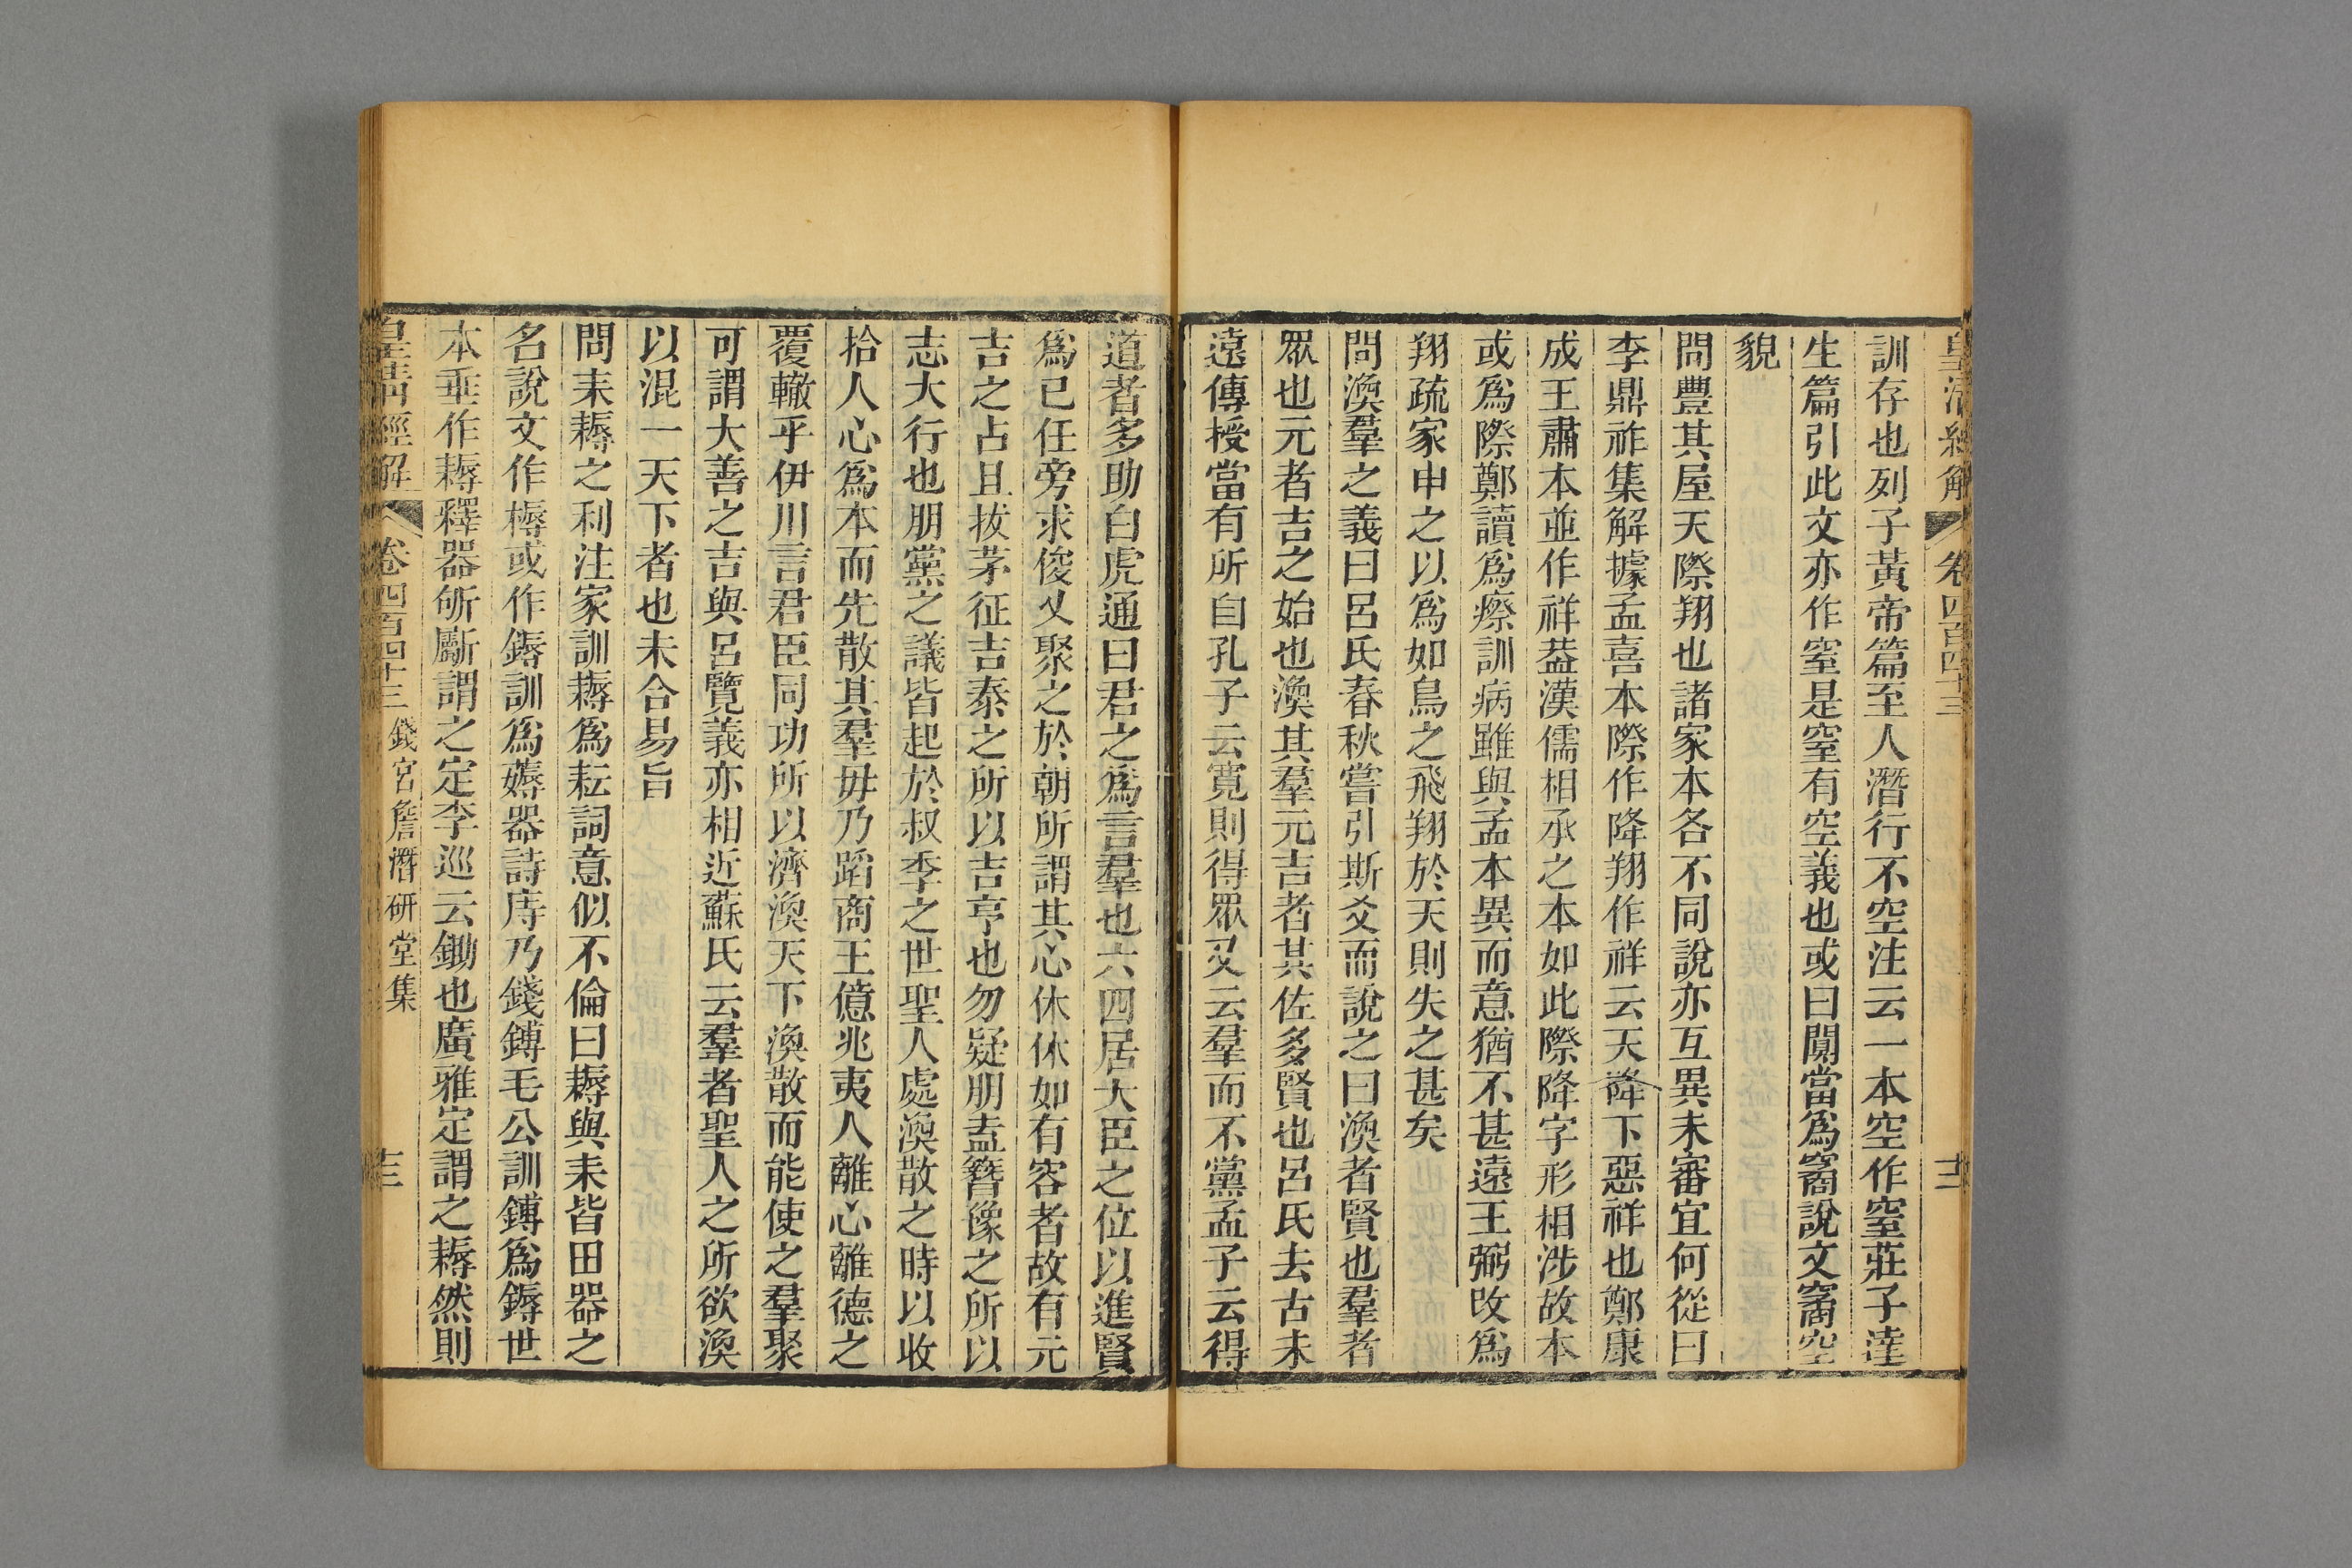 皇清經解 卷四百四十三 十二
訓存也列子黃帝篇至人潛行不空注云一本空作窒莊子達
生篇引此文亦作窒是窒有空義也或曰闃當爲窬說文窬空
貌
問豐其屋天際翔也諸家本各不同說亦互異未審宜何從曰
李鼎祚集解據孟喜本際作降翔作祥云天降下惡祥也鄭康
成王肅本並作祥葢漢儒相承之本如此際降字形相涉故本
或爲際鄭讀爲瘵訓病雖與孟本異而意猶不甚遠王弼改爲
翔疏家申之以爲如鳥之飛翔於天則失之甚矣
問渙羣之義曰呂氏春秋嘗引斯爻而說之曰渙者賢也羣者
眾也元者吉之始也渙其羣元吉者其佐多賢也呂氏去古未
遠傳授當有所自孔子云寬則得眾又云羣而不黨孟子云得
道者多助白虎通曰君之爲言羣也六四居大臣之位以進賢
爲已任旁求俊乂聚之於朝所謂其心休休如有容者故有元
吉之占且拔茅征吉泰之所以吉亨也勿疑朋盍簪豫之所以
志大行也朋黨之議皆起於叔季之世聖人處渙散之時以收
拾人心爲本而先散其羣毋乃蹈商王億兆夷人離心離德之
覆轍乎伊川言君臣同功所以濟渙天下渙散而能使之羣聚
可謂大善之吉與呂覽義亦相近蘇氏云羣者聖人之所欲渙
以混一天下者也未合易旨
問耒耨之利注家訓耨爲耘詞意似不倫曰耨與耒皆田器之
名說文作槈或作鎒訓爲薅器詩庤乃錢鎛毛公訓鎛爲鎒世
本垂作耨釋器斫斸謂之定李巡云鋤也廣雅定謂之耨然則
皇清經解 卷四百四十三 錢宮詹潛研堂集 十三